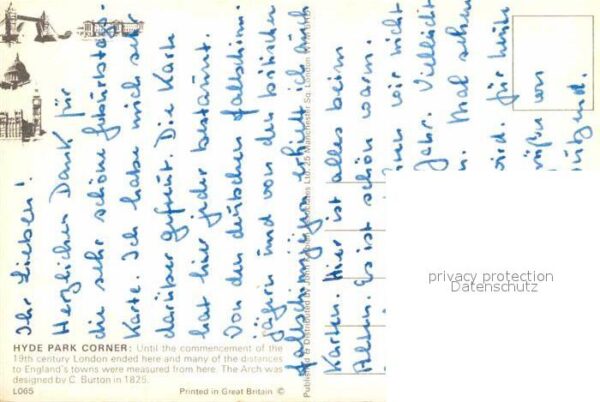 Ihr Lieben!
Herzlichen Dank für
die sehr schöne Geburtstags-
Karte. Ich habe mich sehr
darüber gefreut. Die Karte
hat hier jeder bestaunt.
Von den deutschen Fallschirm-
jägern und von den britischen
Fallschirmjägern erhielt ich auch
Karten. Hier ist alles beim
Alten. Es ist schön warm.
wir nicht
Jahr. Vielleicht
Mal sehen
für heute
von
HYDE PARK CORNER: Until the commencement of the
19th century London ended here and many of the distances
to England's towns were measured from here. The Arch was
designed by C. Burton in 1825.
L065
Printed in Great Britain ©
Published & Distributed by John Ltd, 25 Manchester Sq. London W
privacy protection
Datenschutz